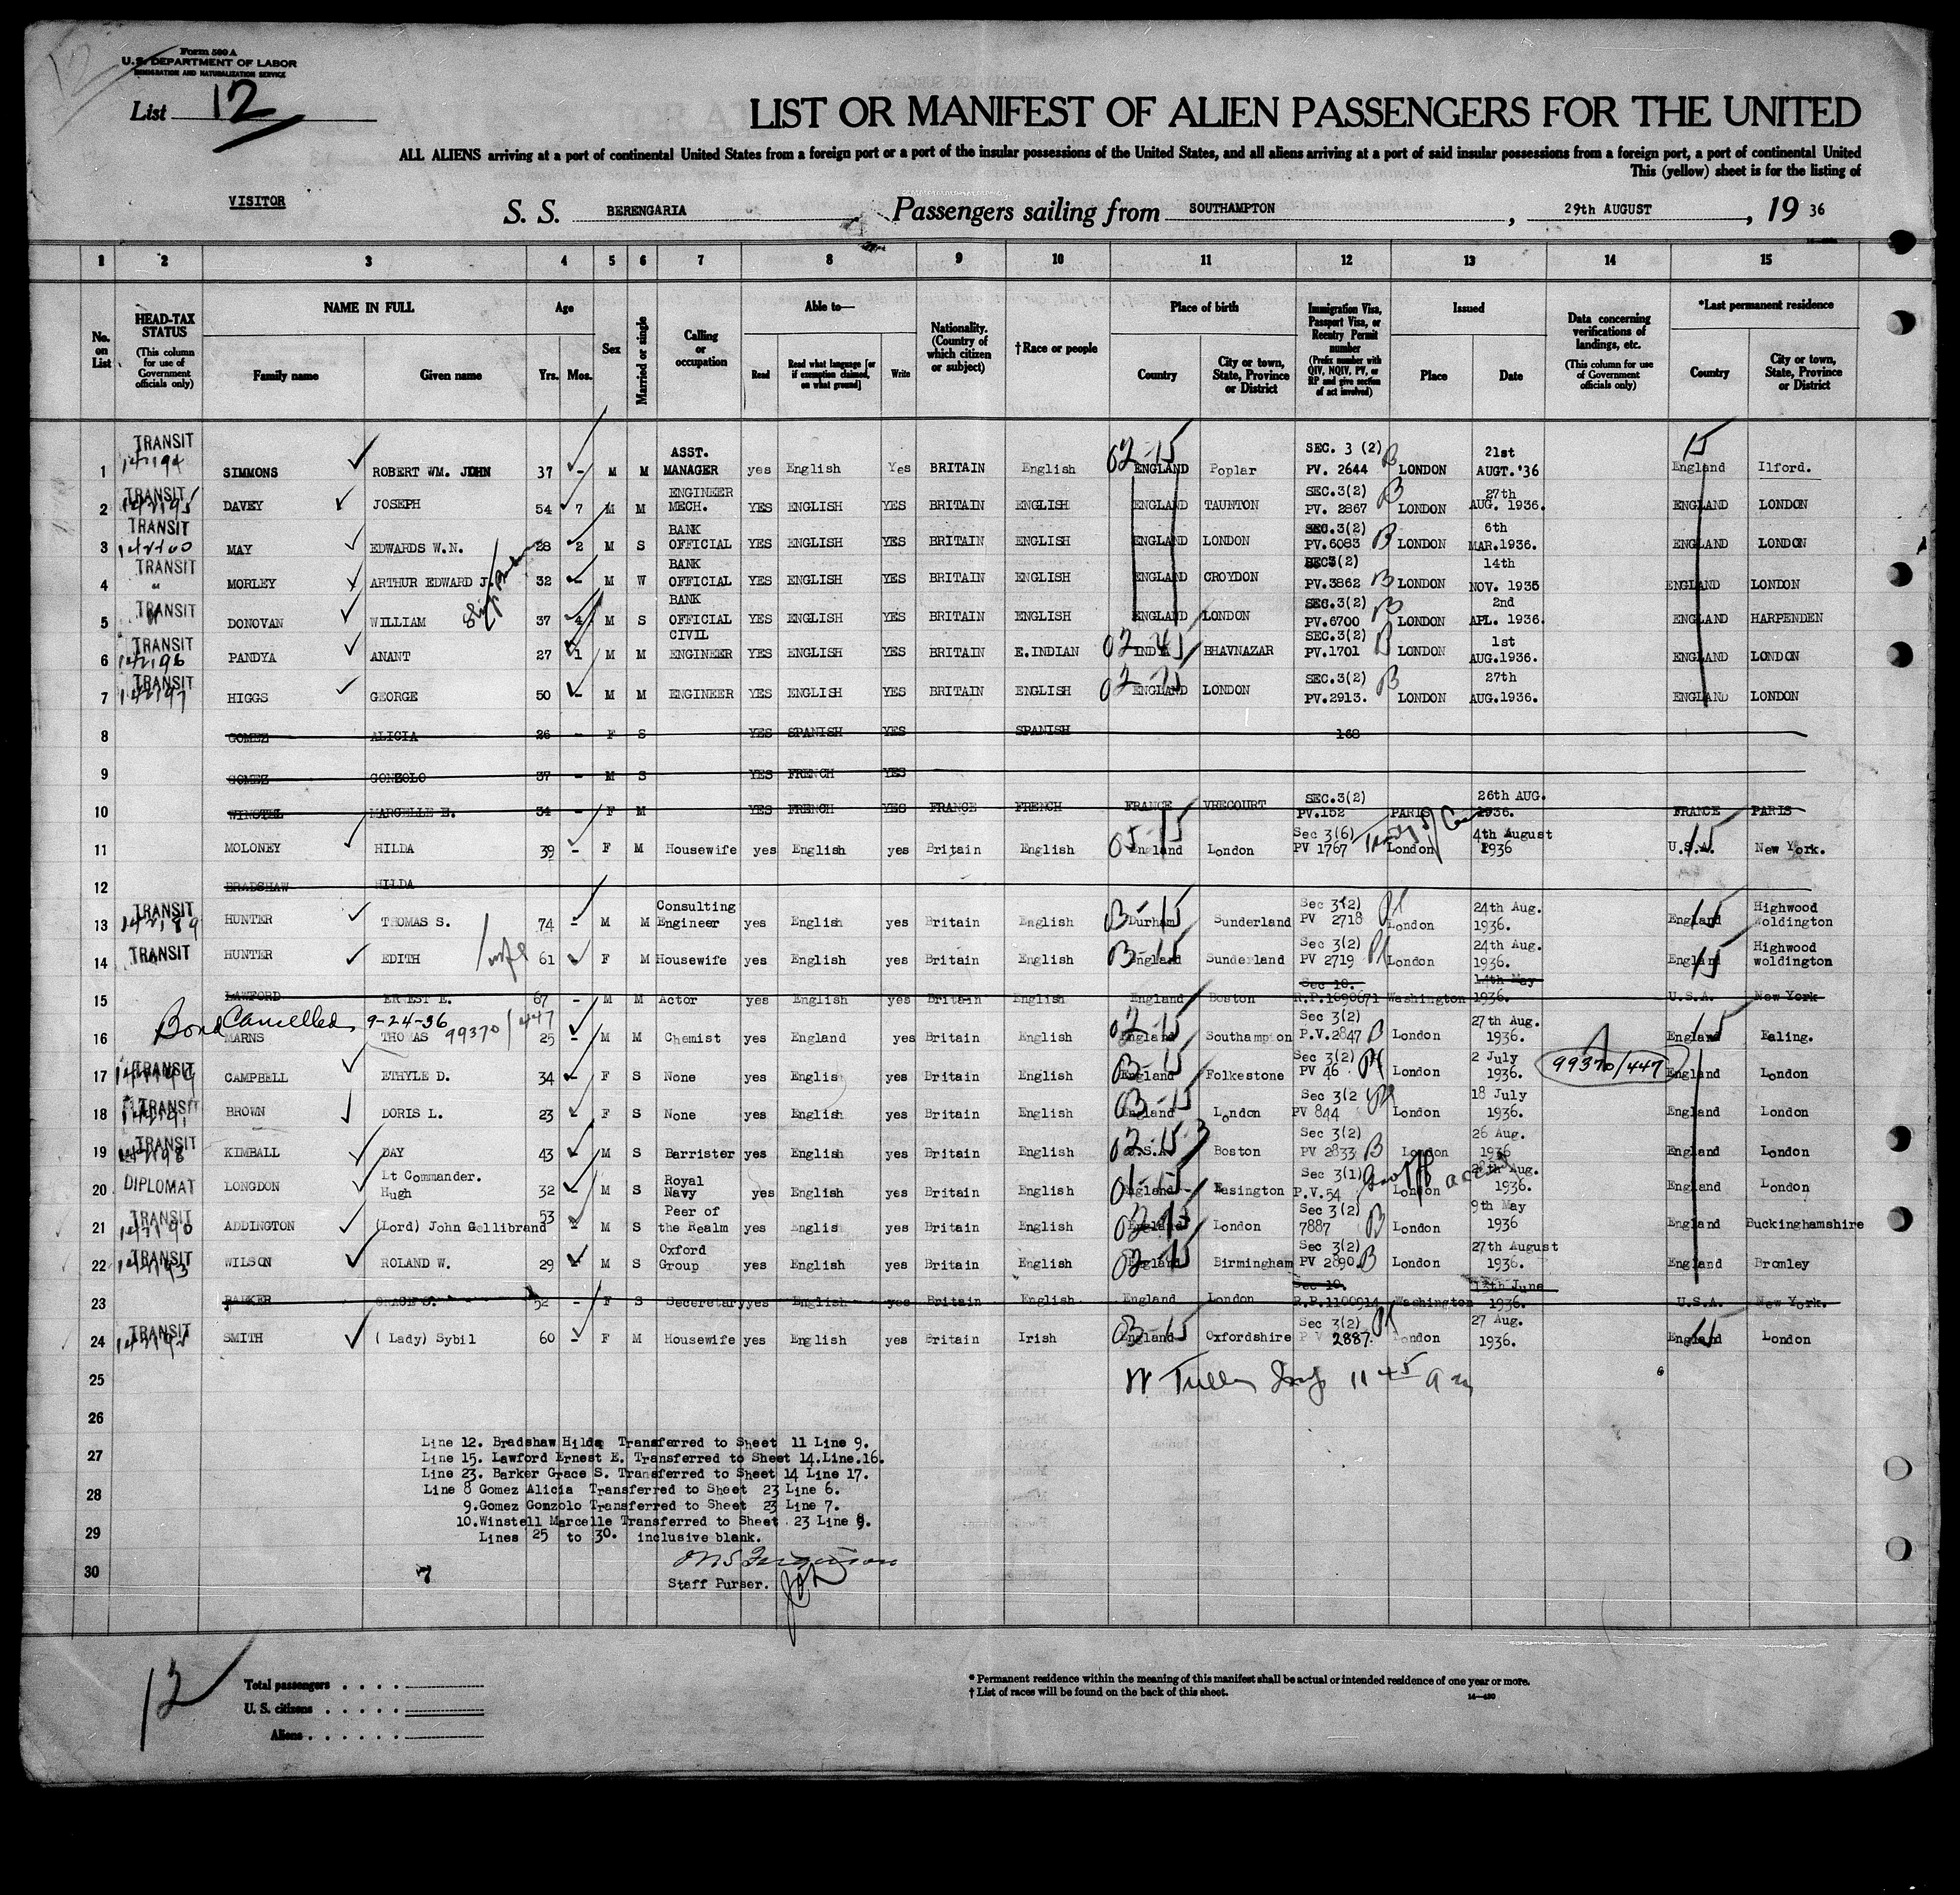 Form 500 A
U.S. DEPARTMENT OF LABOR
IMMIGRATION AND NATURALIZATION SERVICE
12
List 12
LIST OR MANIFEST OF ALIEN PASSENGERS FOR THE UNITED
ALL ALIENS arriving at a port of continental United States from a foreign port or a port of the insular possessions of the United States, and all aliens arriving at a port of said insular possessions from a foreign port, a port of continental United
This (yellow) sheet is for the listing of
VISITOR
S. S. BERENGARIA, Passengers sailing from SOUTHAMPTON, 29th AUGUST, 19 36
1 2 3 4 5 6 7 8 9 10 11 12 13 14 15
No. on List
HEAD-TAX STATUS (This column for use of Government officials only)
NAME IN FULL Family name Given name
Age Yrs. Mos.
Sex
Married or single
Calling or occupation
Able to— Read Read what language [or if exemption claimed, on what ground] Write
Nationality. (Country of which citizen or subject)
†Race or people
Place of birth Country City or town, State, Province or District
Immigration Visa, Passport Visa, or Reentry Permit number (Prefix number with QIV, NQIV, PV, or RP and give section of act involved)
Issued Place Date
Data concerning verifications of landings, etc. (This column for use of Government officials only)
*Last permanent residence Country City or town, State, Province or District
1 TRANSIT SIMMONS ROBERT WM. JOHN 37 - M M ASST. MANAGER yes English Yes BRITAIN English 02-15 ENGLAND Poplar SEC. 3 (2) PV. 2644 B LONDON 21st AUGT.'36 15 England Ilford.
2 TRANSIT DAVEY JOSEPH 54 7 M M ENGINEER MECH. YES ENGLISH YES BRITAIN ENGLISH ENGLAND TAUNTON SEC.3(2) PV. 2867 B LONDON 27th AUG. 1936. ENGLAND LONDON
3 TRANSIT MAY EDWARDS W.N. 28 2 M S BANK OFFICIAL YES ENGLISH YES BRITAIN ENGLISH ENGLAND LONDON SEC.3(2) PV.6083 B LONDON 6th MAR.1936. ENGLAND LONDON
4 TRANSIT " MORLEY ARTHUR EDWARD J. 32 - M W BANK OFFICIAL YES ENGLISH YES BRITAIN ENGLISH ENGLAND CROYDON SEC3(2) PV.3862 B LONDON 14th NOV. 1935 ENGLAND LONDON
5 TRANSIT " DONOVAN WILLIAM 37 4 M S BANK OFFICIAL YES ENGLISH YES BRITAIN ENGLISH ENGLAND LONDON SEC.3(2) PV.6700 B LONDON 2nd APL. 1936. ENGLAND HARPENDEN
6 TRANSIT PANDYA ANANT 27 1 M M CIVIL ENGINEER YES ENGLISH YES BRITAIN E.INDIAN INDIA BHAVNAZAR SEC.3(2) PV.1701 B LONDON 1st AUG.1936. ENGLAND LONDON
7 TRANSIT HIGGS GEORGE 50 - M M ENGINEER YES ENGLISH YES BRITAIN ENGLISH ENGLAND LONDON SEC.3(2) PV.2913. B LONDON 27th AUG.1936. ENGLAND LONDON
8 GOMEZ ALICIA 26 - F S YES SPANISH YES SPANISH 168
9 GOMEZ GONZOLO 37 - M S YES FRENCH YES
10 WINSTEL MARCELLE E. 34 - F M YES FRENCH YES FRANCE FRENCH FRANCE VRECOURT SEC.3(2) PV.152 PARIS 26th AUG. 1936. FRANCE PARIS
11 MOLONEY HILDA 39 - F M Housewife yes English yes Britain English 05-15 England London Sec 3(6) PV 1767 London 4th August 1936 15 U.S.A. New York.
12 BRADSHAW HILDA
13 TRANSIT HUNTER THOMAS S. 74 - M M Consulting Engineer yes English yes Britain English 03-15 Durham Sunderland Sec 3(2) PV 2718 London 24th Aug. 1936. 15 England Highwood Woldington
14 TRANSIT HUNTER EDITH wife 61 F M Housewife yes English yes Britain English 03-15 England Sunderland Sec 3(2) PV 2719 London 24th Aug. 1936. 15 England Highwood woldington
15 LAWFORD ERNEST E. 67 - M M Actor yes English yes Britain English England Boston Sec 10. R.P.1090671 Washington 14th May 1936. U.S.A. New York
Bond Cancelled 9-24-36 99370/447
16 MARNS THOMAS 25 - M M Chemist yes England yes Britain English 02-15 England Southampton Sec 3(2) P.V.2847 B London 27th Aug. 1936. 99370/447 15 England Ealing.
17 TRANSIT CAMPBELL ETHYLE D. 34 - F S None yes Englis yes Britain English 03-15 England Folkestone Sec 3(2) PV 46 London 2 July 1936. England London
18 TRANSIT BROWN DORIS L. 23 F S None yes English yes Britain English 03-15 England London Sec 3(2 PV 844 London 18 July 1936. England London
19 TRANSIT KIMBALL DAY 43 M S Barrister yes English yes Britain English 02-15 U.S.A. Boston Sec 3(2) PV 2833 B London 26 Aug. 1936 England London
20 DIPLOMAT LONGDON Lt Commander. Hugh 32 - M S Royal Navy yes English yes Britain English 01-15 England Easington Sec 3(1) P.V.54 London 28th Aug. 1936. England London
21 TRANSIT ADDINGTON (Lord) John Gellibrand 53 - M S Peer of the Realm yes Englis yes Britain English 02-15 England London Sec 3(2) 7887 B London 9th May 1936 England Buckinghamshire
22 TRANSIT WILSON ROLAND W. 29 M S Oxford Group yes English yes Britain English 02-15 England Birmingham Sec 3(2) PV 2890. B London 27th August 1936. England Bromley
23 BARKER GRACE S. 52 - F S Seceretary yes English yes Britain English England London Sec 10. R.P.1100914 Washington 12th June 1936. U.S.A. New York.
24 TRANSIT SMITH ( Lady) Sybil 60 - F M Housewife yes English yes Britain Irish 03-15 England Oxfordshire Sec 3(2) P V 2887. London 27 Aug. 1936. 15 England London
25 11 45 am
26
27
28
29
30
Line 12. Bradshaw Hilda Transferred to Sheet 11 Line 9.
Line 15. Lawford Ernest E. Transferred to Sheet 14.Line.16.
Line 23. Barker Grace S. Transferred to Sheet 14 Line 17.
Line 8 Gomez Alicia Transferred to Sheet 23 Line 6.
9.Gomez Gonzolo Transferred to Sheet 23 Line 7.
10.Winstell Marcelle Transferred to Sheet. 23 Line 9.
Lines 25 to 30. inclusive blank.
Staff Purser.
12
Total passengers . . . .
U. S. citizens . . . . .
Aliens . . . . . .
* Permanent residence within the meaning of this manifest shall be actual or intended residence of one year or more.
† List of races will be found on the back of this sheet.
14—480